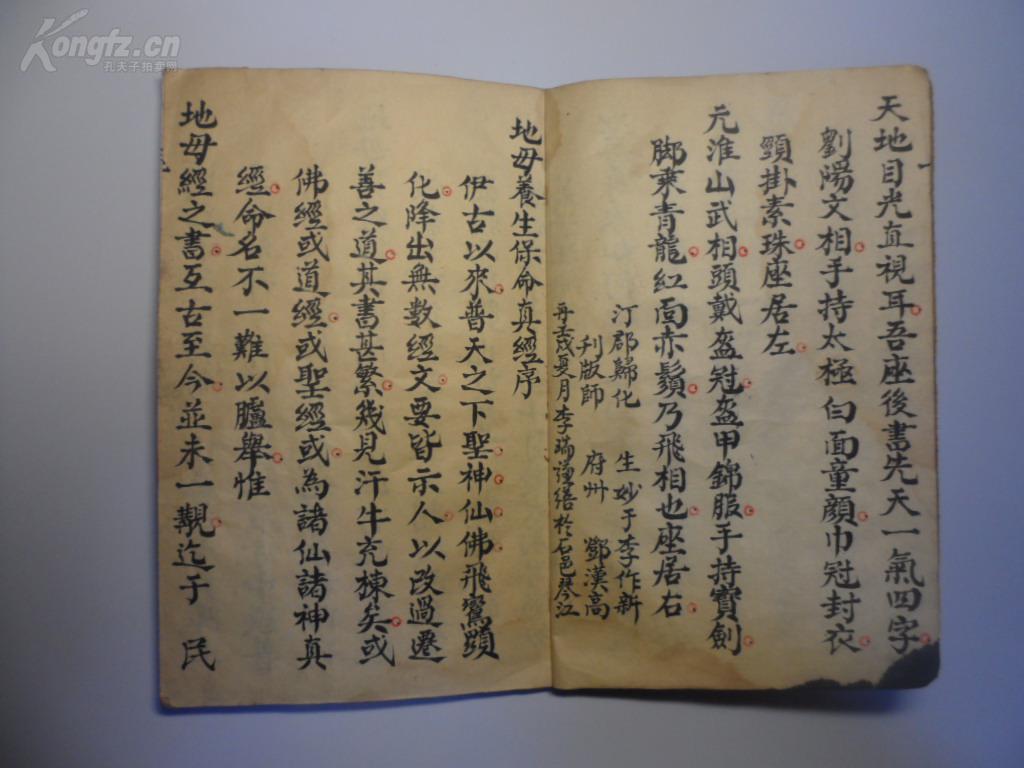 天地目光直視耳吾座後書先天一氣四字
劉陽文相手持太極白面童顏巾冠封衣
頸掛素珠座居左
元淮山武相頭戴盔冠盔甲錦服手持寶劍
脚乘青龍紅面赤鬚乃飛相也座居右
汀郡歸化 生妙于李作新
刋版師 府州 鄧漢高
壬戌夏月李瑞謹繕於石邑琴江
地毋養生保命真經序
伊古以來普天之下聖神仙佛飛鸞顕
化降出無數經文要皆示人以改過遷
善之道其書甚繁幾見汗牛充棟矣或
佛經或道經或聖經或為諸仙諸神真
經命名不一難以臚舉惟
地毋經之書亙古至今並未一覯迄于 民
Kongfz.cn
孔夫子拍卖网